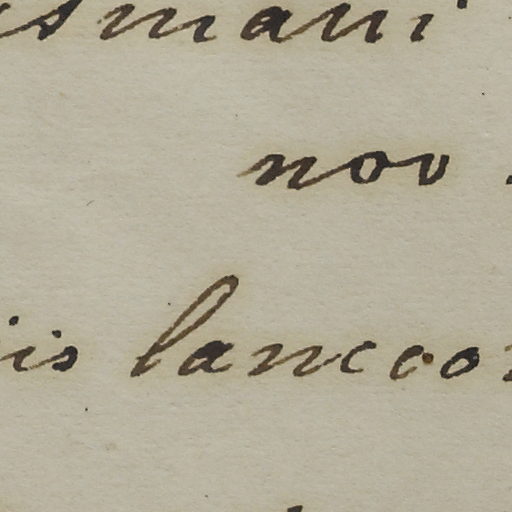 smani
nov
is lanceo